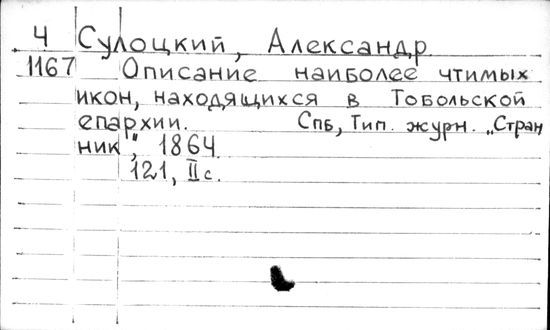 Ч Сулоцкий, Александр
1167 Описание наиболее чтимых
икон, находящихся в Тобольской
епархии. Спб, Тип. журн. „Стран
ник", 1864.
121, II с.